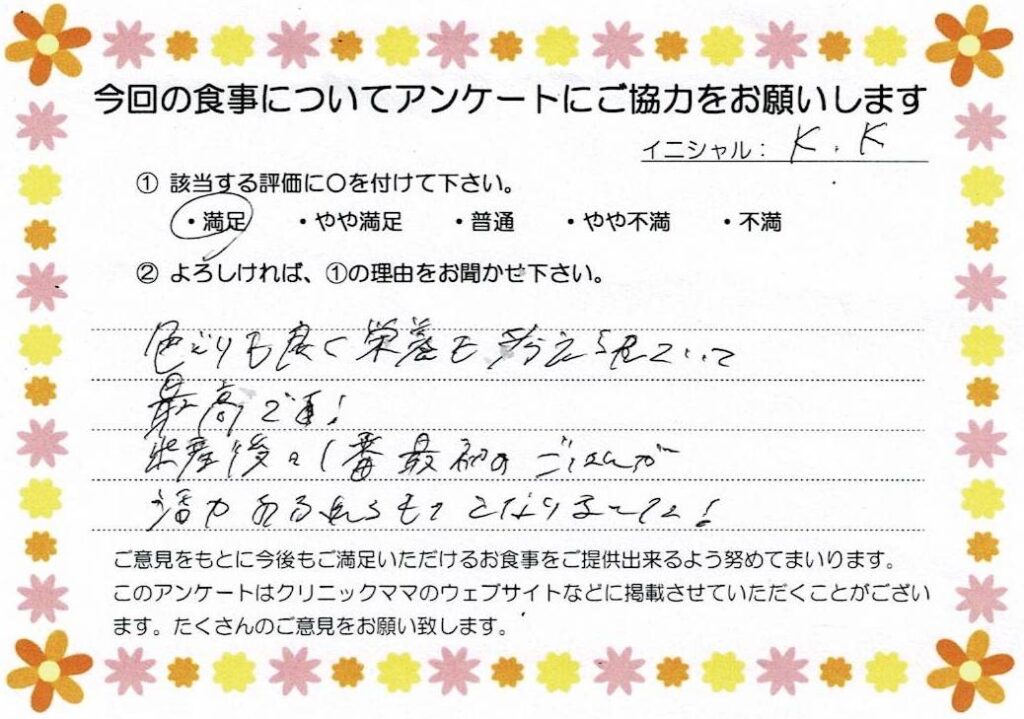 今回の食事についてアンケートにご協力をお願いします
イニシャル： K.K
① 該当する評価に〇を付けて下さい。
・満足 ・やや満足 ・普通 ・やや不満 ・不満
② よろしければ、①の理由をお聞かせ下さい。
色どりも良く栄養も考えられていて
最高です!
出産後の1番最初のごはんが
活力ある となりました!
ご意見をもとに今後もご満足いただけるお食事をご提供出来るよう努めてまいります。
このアンケートはクリニックママのウェブサイトなどに掲載させていただくことがござい
ます。たくさんのご意見をお願い致します。